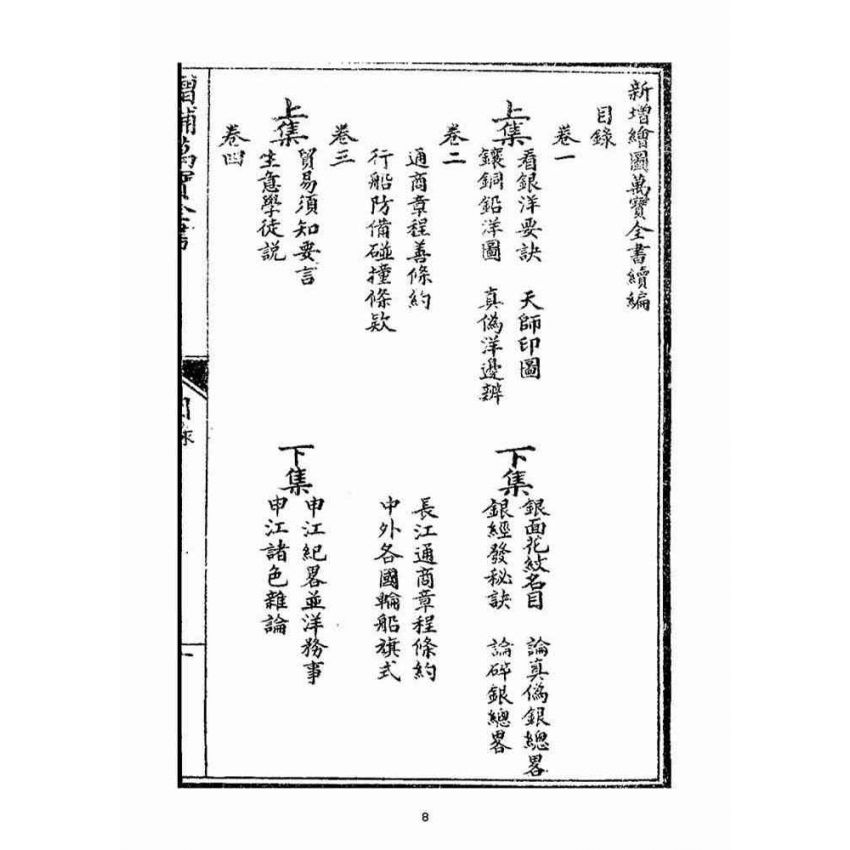 新增繪圖萬寶全書續編
目錄
卷一
上集
看銀洋要訣 天師印圖
鑲銅鉛洋圖 真偽洋邊辨
下集
銀面花紋名目 論真偽銀總畧
銀經發秘訣 論碎銀總畧
卷二
通商章程善條約
行船防備碰撞條欵
長江通商章程條約
中外各國輪船旗式
卷三
上集
貿易須知要言
生意學徒説
下集
申江紀畧並洋務事
申江諸色雜論
卷四
增補萬寶全書
目录
一
8